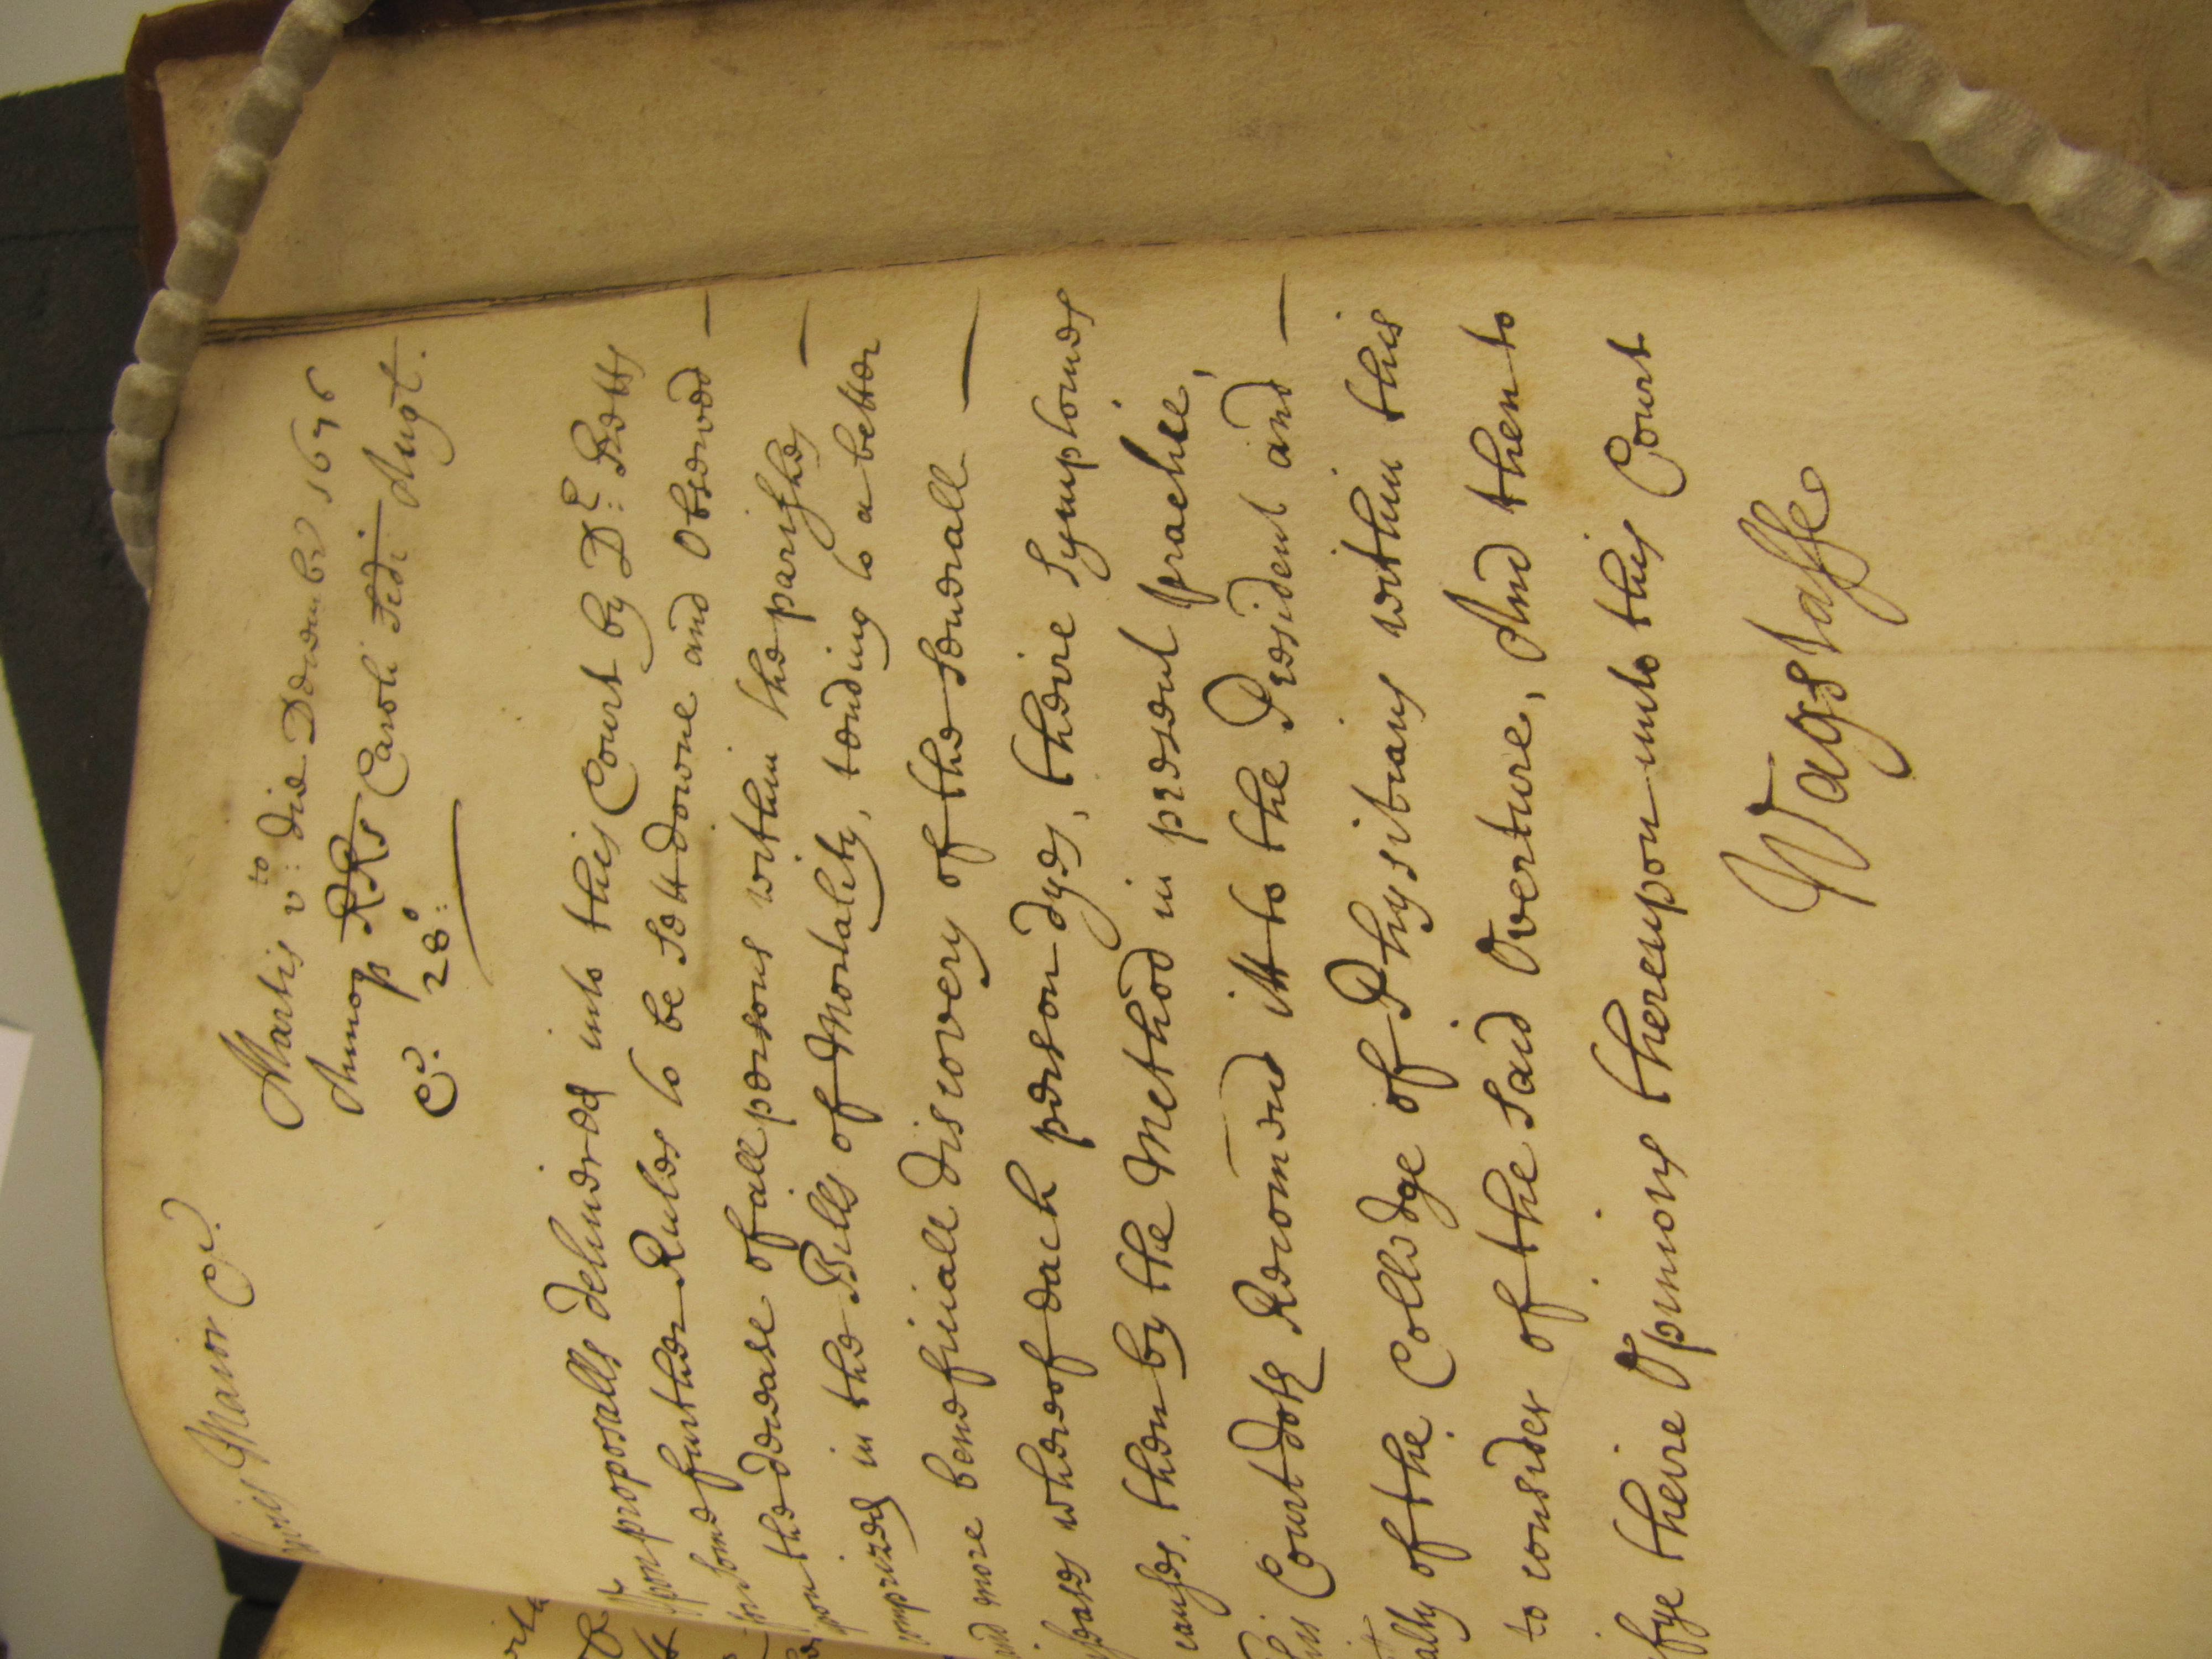 Maior Cr?
Martis v:to die Decembr 1676
Annoqz RRs Caroli Scdi Angl.
Cr. 28:o
Upon proposalls deliuered into this Court by Dr: Betts
for some further Rules to be Sett downe and Observed —
upon the decease of all persons within the parishes —
comprized in the Bills of Mortality, tending to a better
and more beneficiall discovery of the Seuerall —
diseases whereof each person dyes, theire Symptomes
causes, then by the Method in present practice,
this Court doth Recomend itt to the President and —
of the Colledge of Physitians within this
to consider of the said Overture, And then to
theire Opinions thereupon unto this Court
Wagstaffe